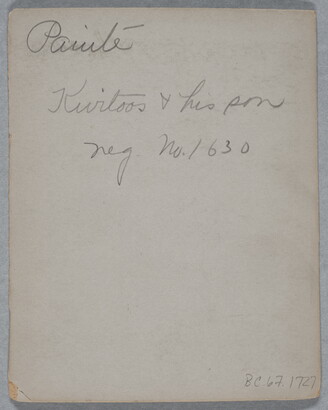 Paiute
Kwitoos & his son
neg No. 1630
BC 67.1727